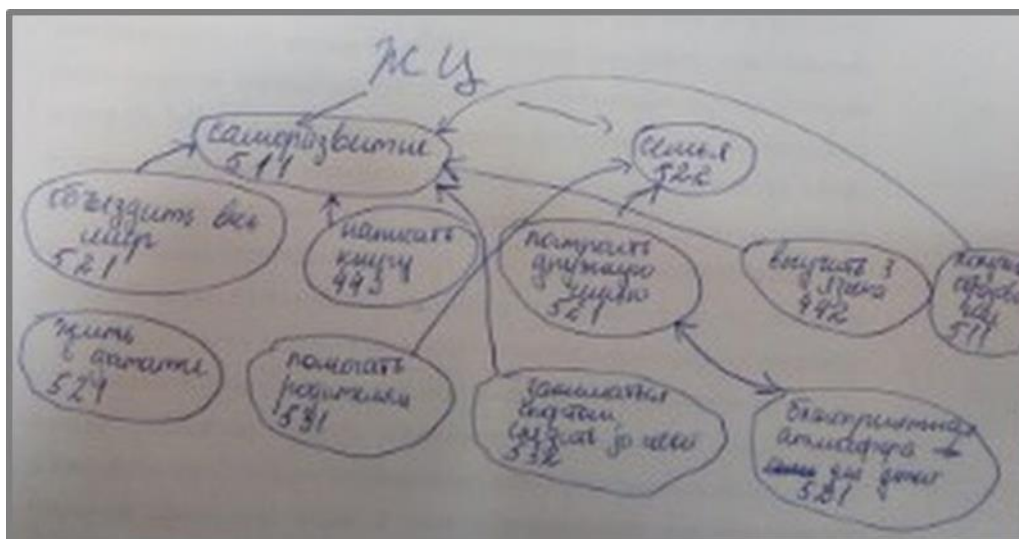 ЖЦ
саморазвитие
511
семья
522
объездить весь
мир
521
написать
книгу
443
построить
дружную
521
выучить 3
языка
442
511
жить
в достатке
524
помогать
родителям
531
заниматься
спортом
следить за
532
благоприятная
атмосфера
для детей
521